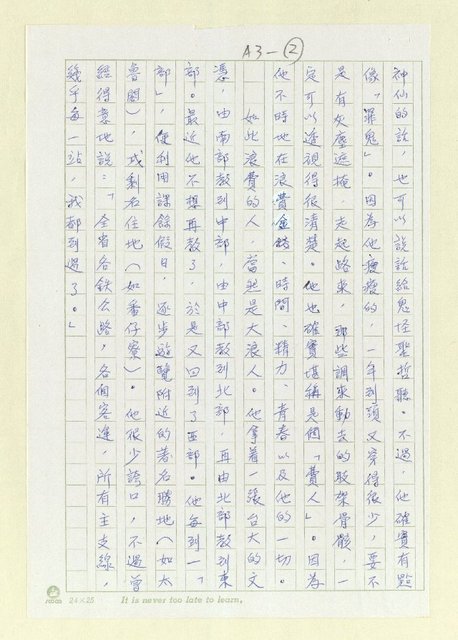 A3-②
神仙的話，也可以說話給鬼怪聖哲聽。不過，他確實有點
像「罪鬼」。因為他瘦瘦的，一年到頭又穿得很少，要不
是有灰塵遮掩，走起路來，那些調來動去的肢架骨骼，一
定可以透視得很清楚。他也確實堪稱是個「費人」。因為
他不時地在浪費金錢、時間、精力、青春以及他的一切。
如此浪費的人，當然是大浪人。他拿着一張台大的文
憑，由南部教到中部，由中部教到北部，再由北部教到東
部。最近他不想再教了，於是又回到了西部。他每到一「
部」，便利用課餘假日，逐步遊覽附近的著名勝地（如太
魯閣），或剩名住地（如番仔寮）。他很少誇口，不過曾
經得意地說：「全省各鐵公路，各個客運，所有主支線，
幾乎每一站，我都到過了。」
24×25
It is never too late to learn.